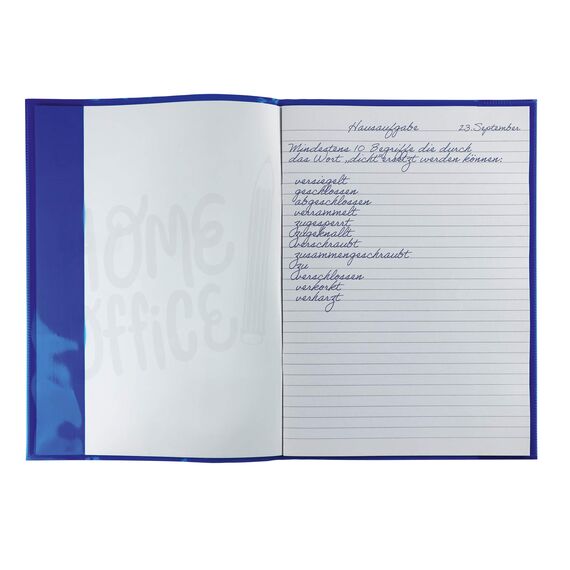 HOME
OFFICE
Hausaufgabe 23. September
Mindestens 10 Begriffe die durch
das Wort „dicht“ ersetzt werden können:
versiegelt
geschlossen
abgeschlossen
verrammelt
zugesperrt
zugeknallt
verschraubt
zusammengeschraubt
zu
verschlossen
verkorkt
verharzt